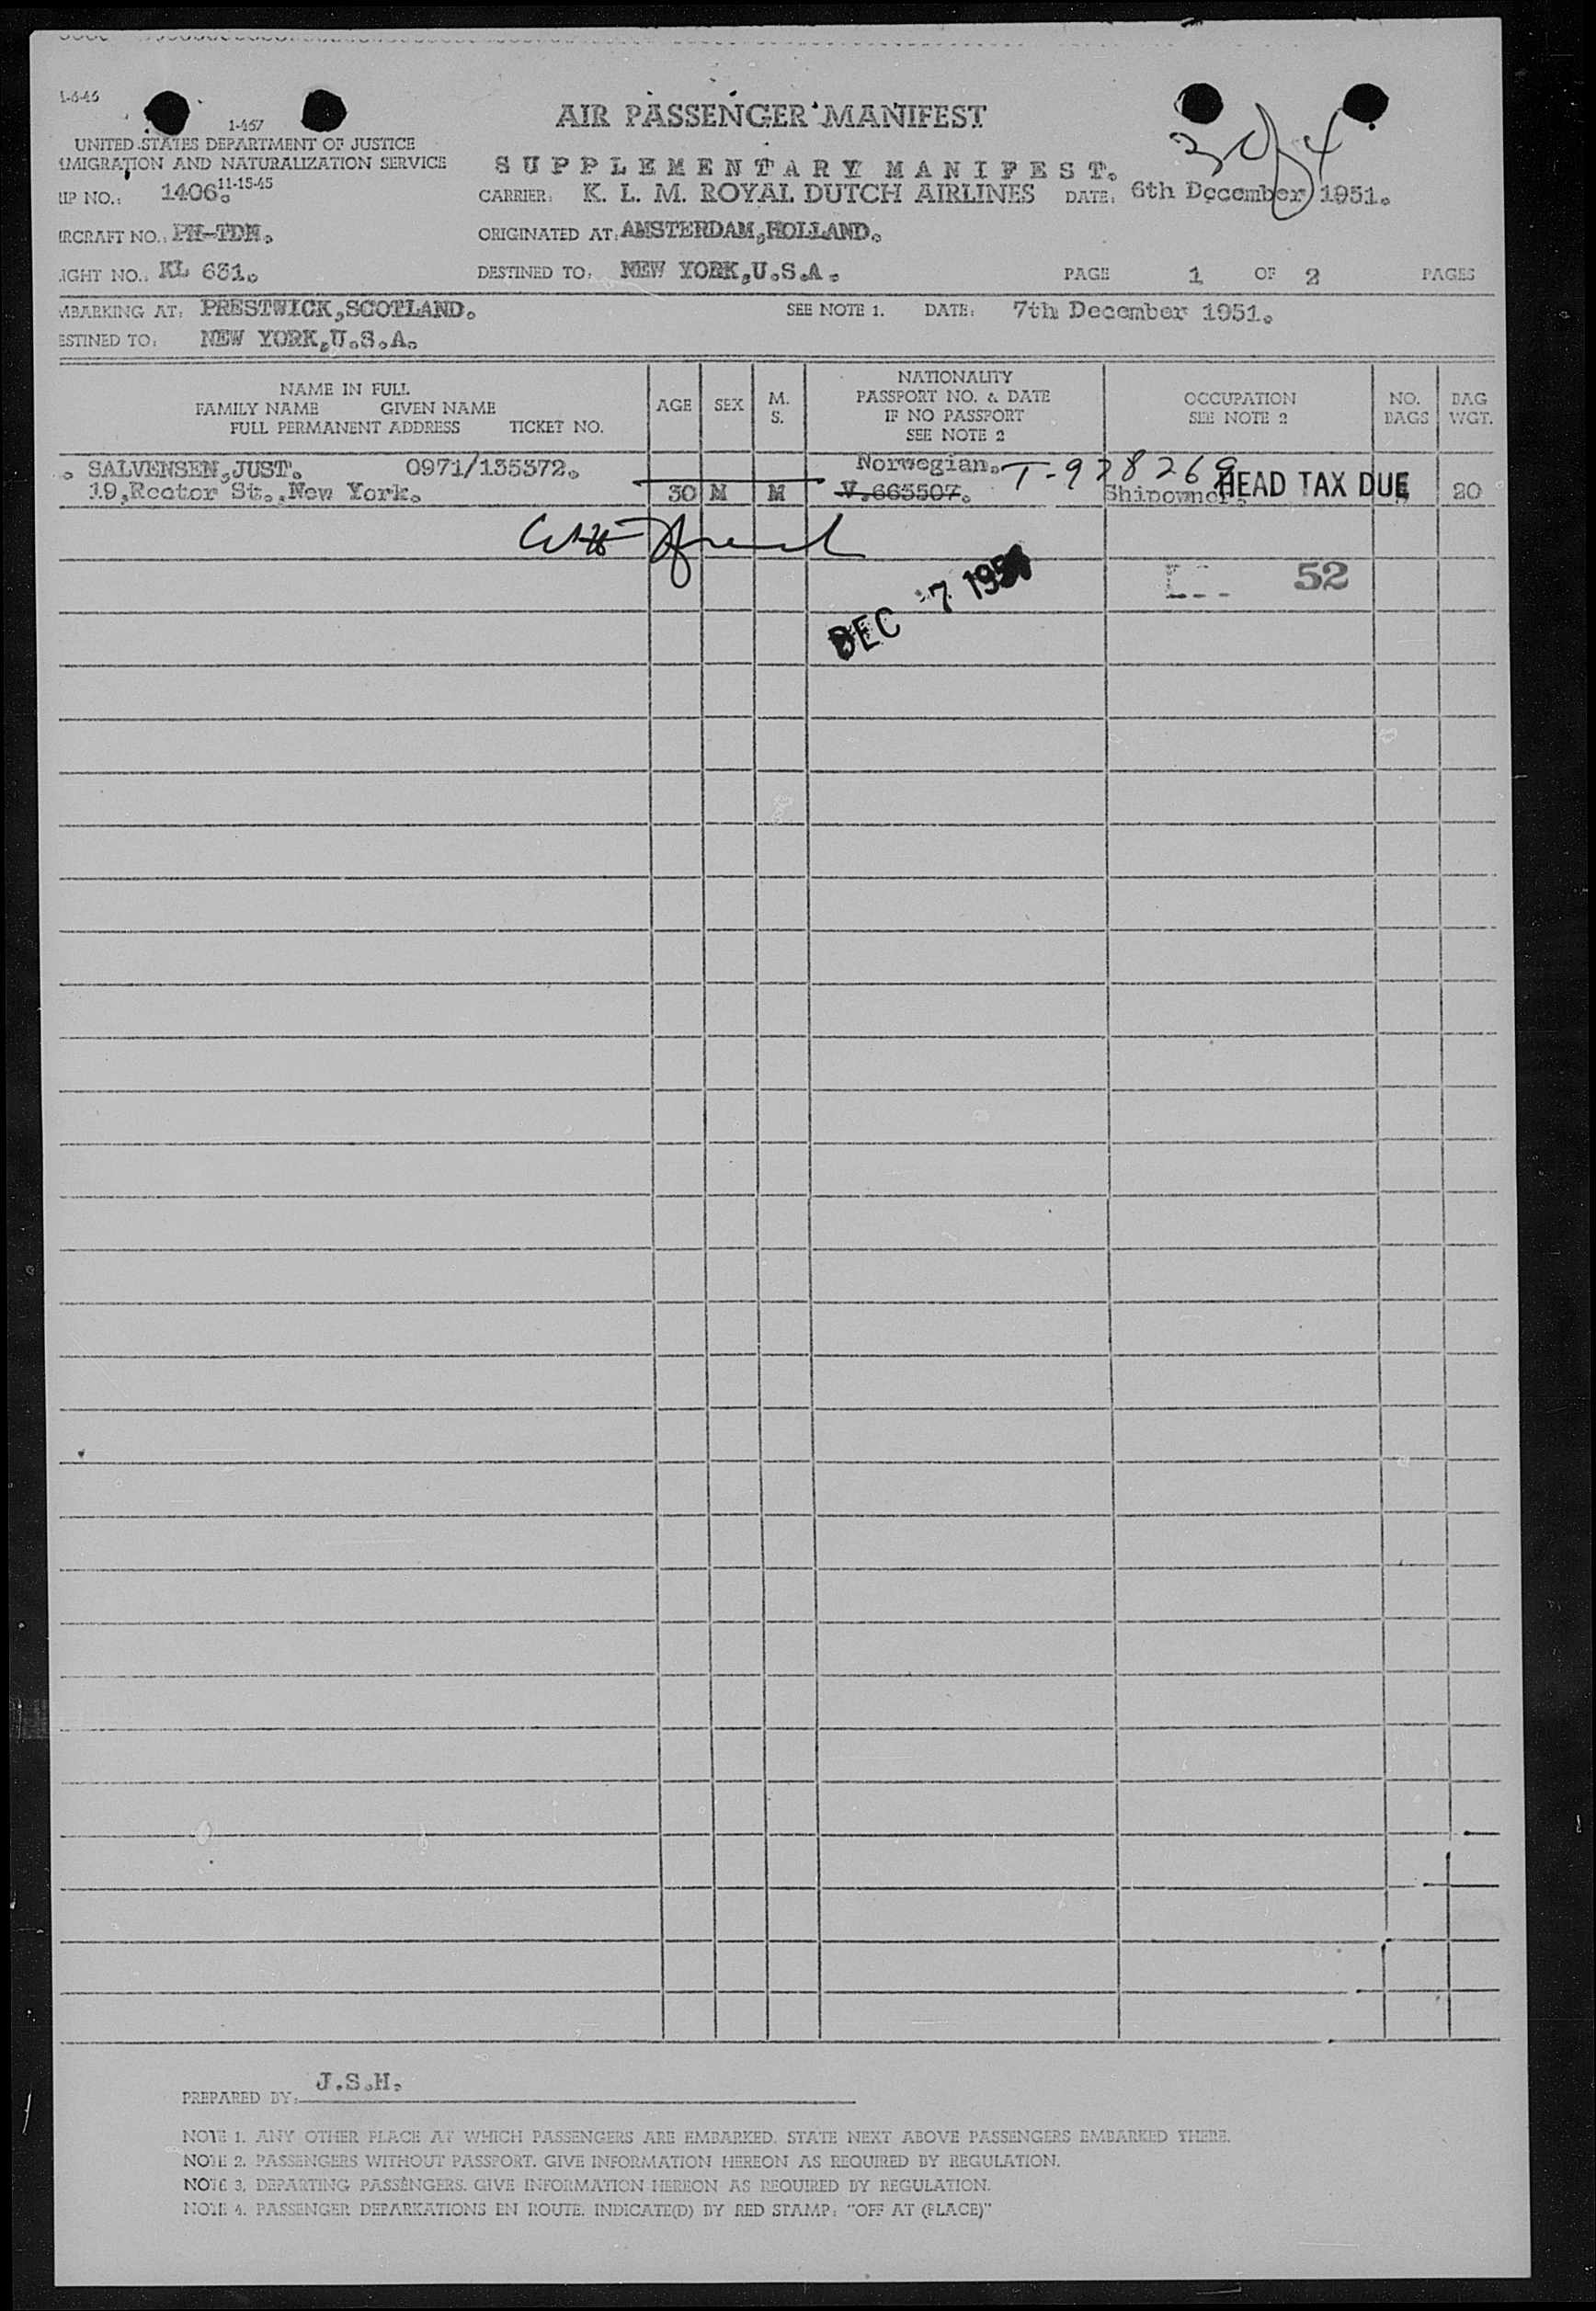 1-6-46
1-467
AIR PASSENGER MANIFEST
3 of 4
UNITED STATES DEPARTMENT OF JUSTICE
IMMIGRATION AND NATURALIZATION SERVICE
SUPPLEMENTARY MANIFEST.
IIP NO.: 1406. 11-15-45 CARRIER: K. L. M. ROYAL DUTCH AIRLINES DATE: 6th December 1951.
IRCRAFT NO.: PH-TDN. ORIGINATED AT: AMSTERDAM, HOLLAND.
IGHT NO.: KL 631. DESTINED TO: NEW YORK, U.S.A. PAGE 1 OF 2 PAGES
MBARKING AT: PRESTWICK, SCOTLAND. SEE NOTE 1. DATE: 7th December 1951.
ESTINED TO: NEW YORK, U.S.A.
NAME IN FULL
FAMILY NAME GIVEN NAME
FULL PERMANENT ADDRESS TICKET NO.
AGE SEX M. S.
NATIONALITY
PASSPORT NO. & DATE
IF NO PASSPORT
SEE NOTE 2
OCCUPATION
SEE NOTE 2
NO. BAGS
BAG WGT.
SALVENSEN, JUST. 0971/135372. Norwegian. T-928269
19, Rector St., New York. 30 M M V.663507. Shipowner. HEAD TAX DUE 20
DEC 7 1951
52
PREPARED BY: J.S.H.
NOTE 1. ANY OTHER PLACE AT WHICH PASSENGERS ARE EMBARKED, STATE NEXT ABOVE PASSENGERS EMBARKED THERE.
NOTE 2. PASSENGERS WITHOUT PASSPORT, GIVE INFORMATION HEREON AS REQUIRED BY REGULATION.
NOTE 3. DEPARTING PASSENGERS, GIVE INFORMATION HEREON AS REQUIRED BY REGULATION.
NOTE 4. PASSENGER DEPARKATIONS EN ROUTE, INDICATE(D) BY RED STAMP: "OFF AT (PLACE)"